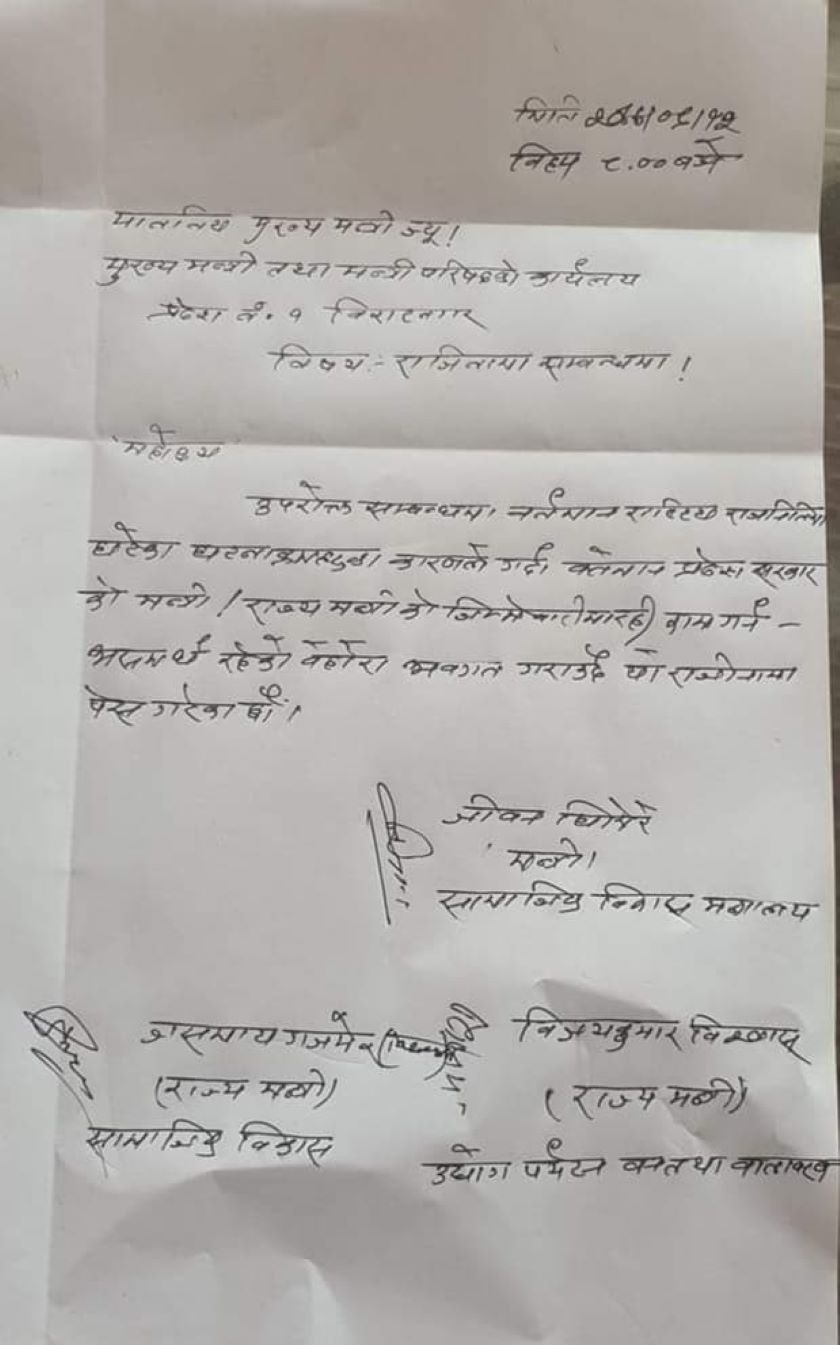 मिति
विहय ८.०० बजे
माननिय मुख्य मन्त्री ज्यू!
मुख्य मन्त्री तथा मन्त्री परिषदको कार्यलय
प्रदेश नं. १ विराटनगर
विषय:- राजिनामा सम्बन्धमा!
महोदय
उपरोक्त सम्बन्धमा, वर्तमान राष्ट्रिय राजनितिमा
घटेका कारणले गर्दा वर्तमान प्रदेश सरकार
को मन्त्री / राज्य मन्त्री को जिम्मेवारीमा रही काम गर्न -
असमर्थ रहेको वेहोरा अवगत गराउदै यो राजीनामा
पेस गरेका छौं।
जीवन घिमिरे
मन्त्री।
सामाजिक विकास मन्त्रालय
जसमाय गजमेर
(राज्य मन्त्री)
सामाजिक विकास
विजयकुमार विश्वास
(राज्य मन्त्री)
उद्योग पर्यटन वन तथा वातावरण